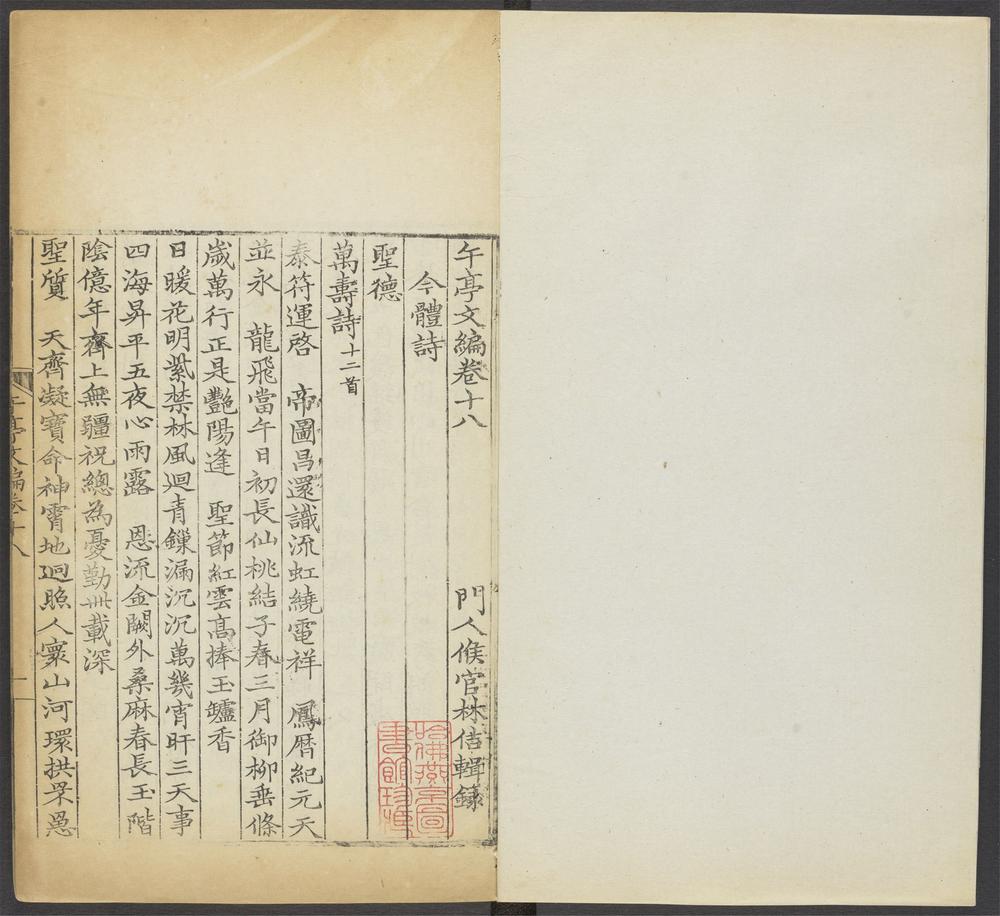 午亭文編卷十八
門人候官林佶輯錄
今體詩
聖德
萬壽詩十二首
泰符運啓 帝圖昌還識流虹繞電祥 鳳曆紀元天
並永 龍飛當午日初長仙桃結子春三月御柳垂條
歲萬行正是艷陽逢 聖節紅雲高捧玉罏香
日暖花明紫禁林風廻青鏁漏沉沉萬幾宵旰三天事
四海昇平五夜心雨露 恩流金闕外桑麻春長玉階
陰億年齊上無疆祝總為憂勤卌載深
聖質 天齊凝寶命神霄地迥照人寰山河環拱罘罳
午亭文編卷十八
一
哈佛燕京圖書館珍藏